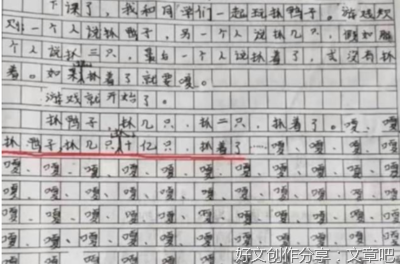 下课了，我和同学们一起玩抓鸭子。游戏规
一个人说抓鸭子，另一个人说抓几只，
个人说抓三只，最后一个人说抓着了，或没有抓
着。如果抓着了就要嘎。
游戏就开始了。
抓鸭子，抓几只，抓二只，抓着了。嘎、嘎
抓鸭子抓几只十亿只，抓着了 嘎、嘎、嘎、
嘎、嘎、嘎、嘎、嘎、嘎、嘎、嘎、嘎
嘎、嘎、嘎、嘎、嘎、嘎、嘎、嘎、嘎
嘎、嘎、嘎、嘎、嘎、嘎、嘎、嘎、嘎
嘎、嘎、嘎、嘎、嘎、嘎、嘎、嘎
好文创作分享：文章吧